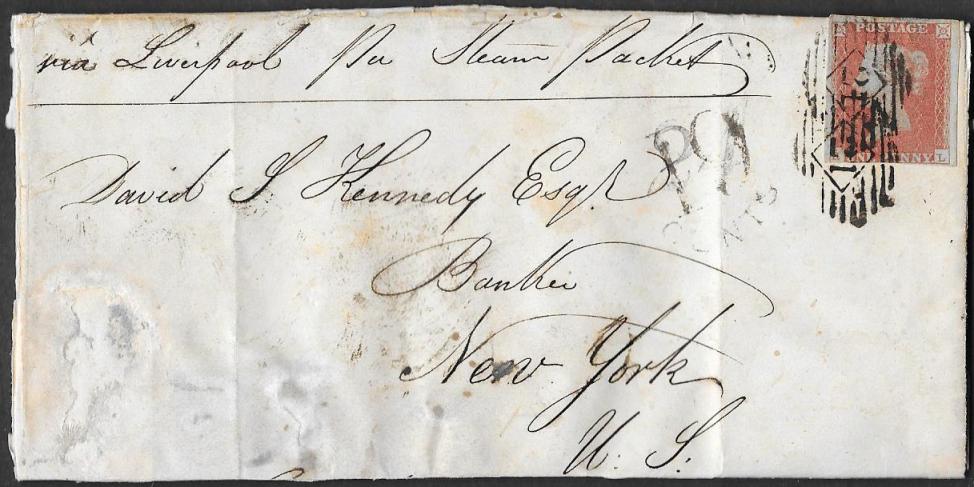 via Liverpool Per Steam Packet
POSTAGE
ONE PENNY L
David S Kennedy Esqr.
Banker
New York
U. S.